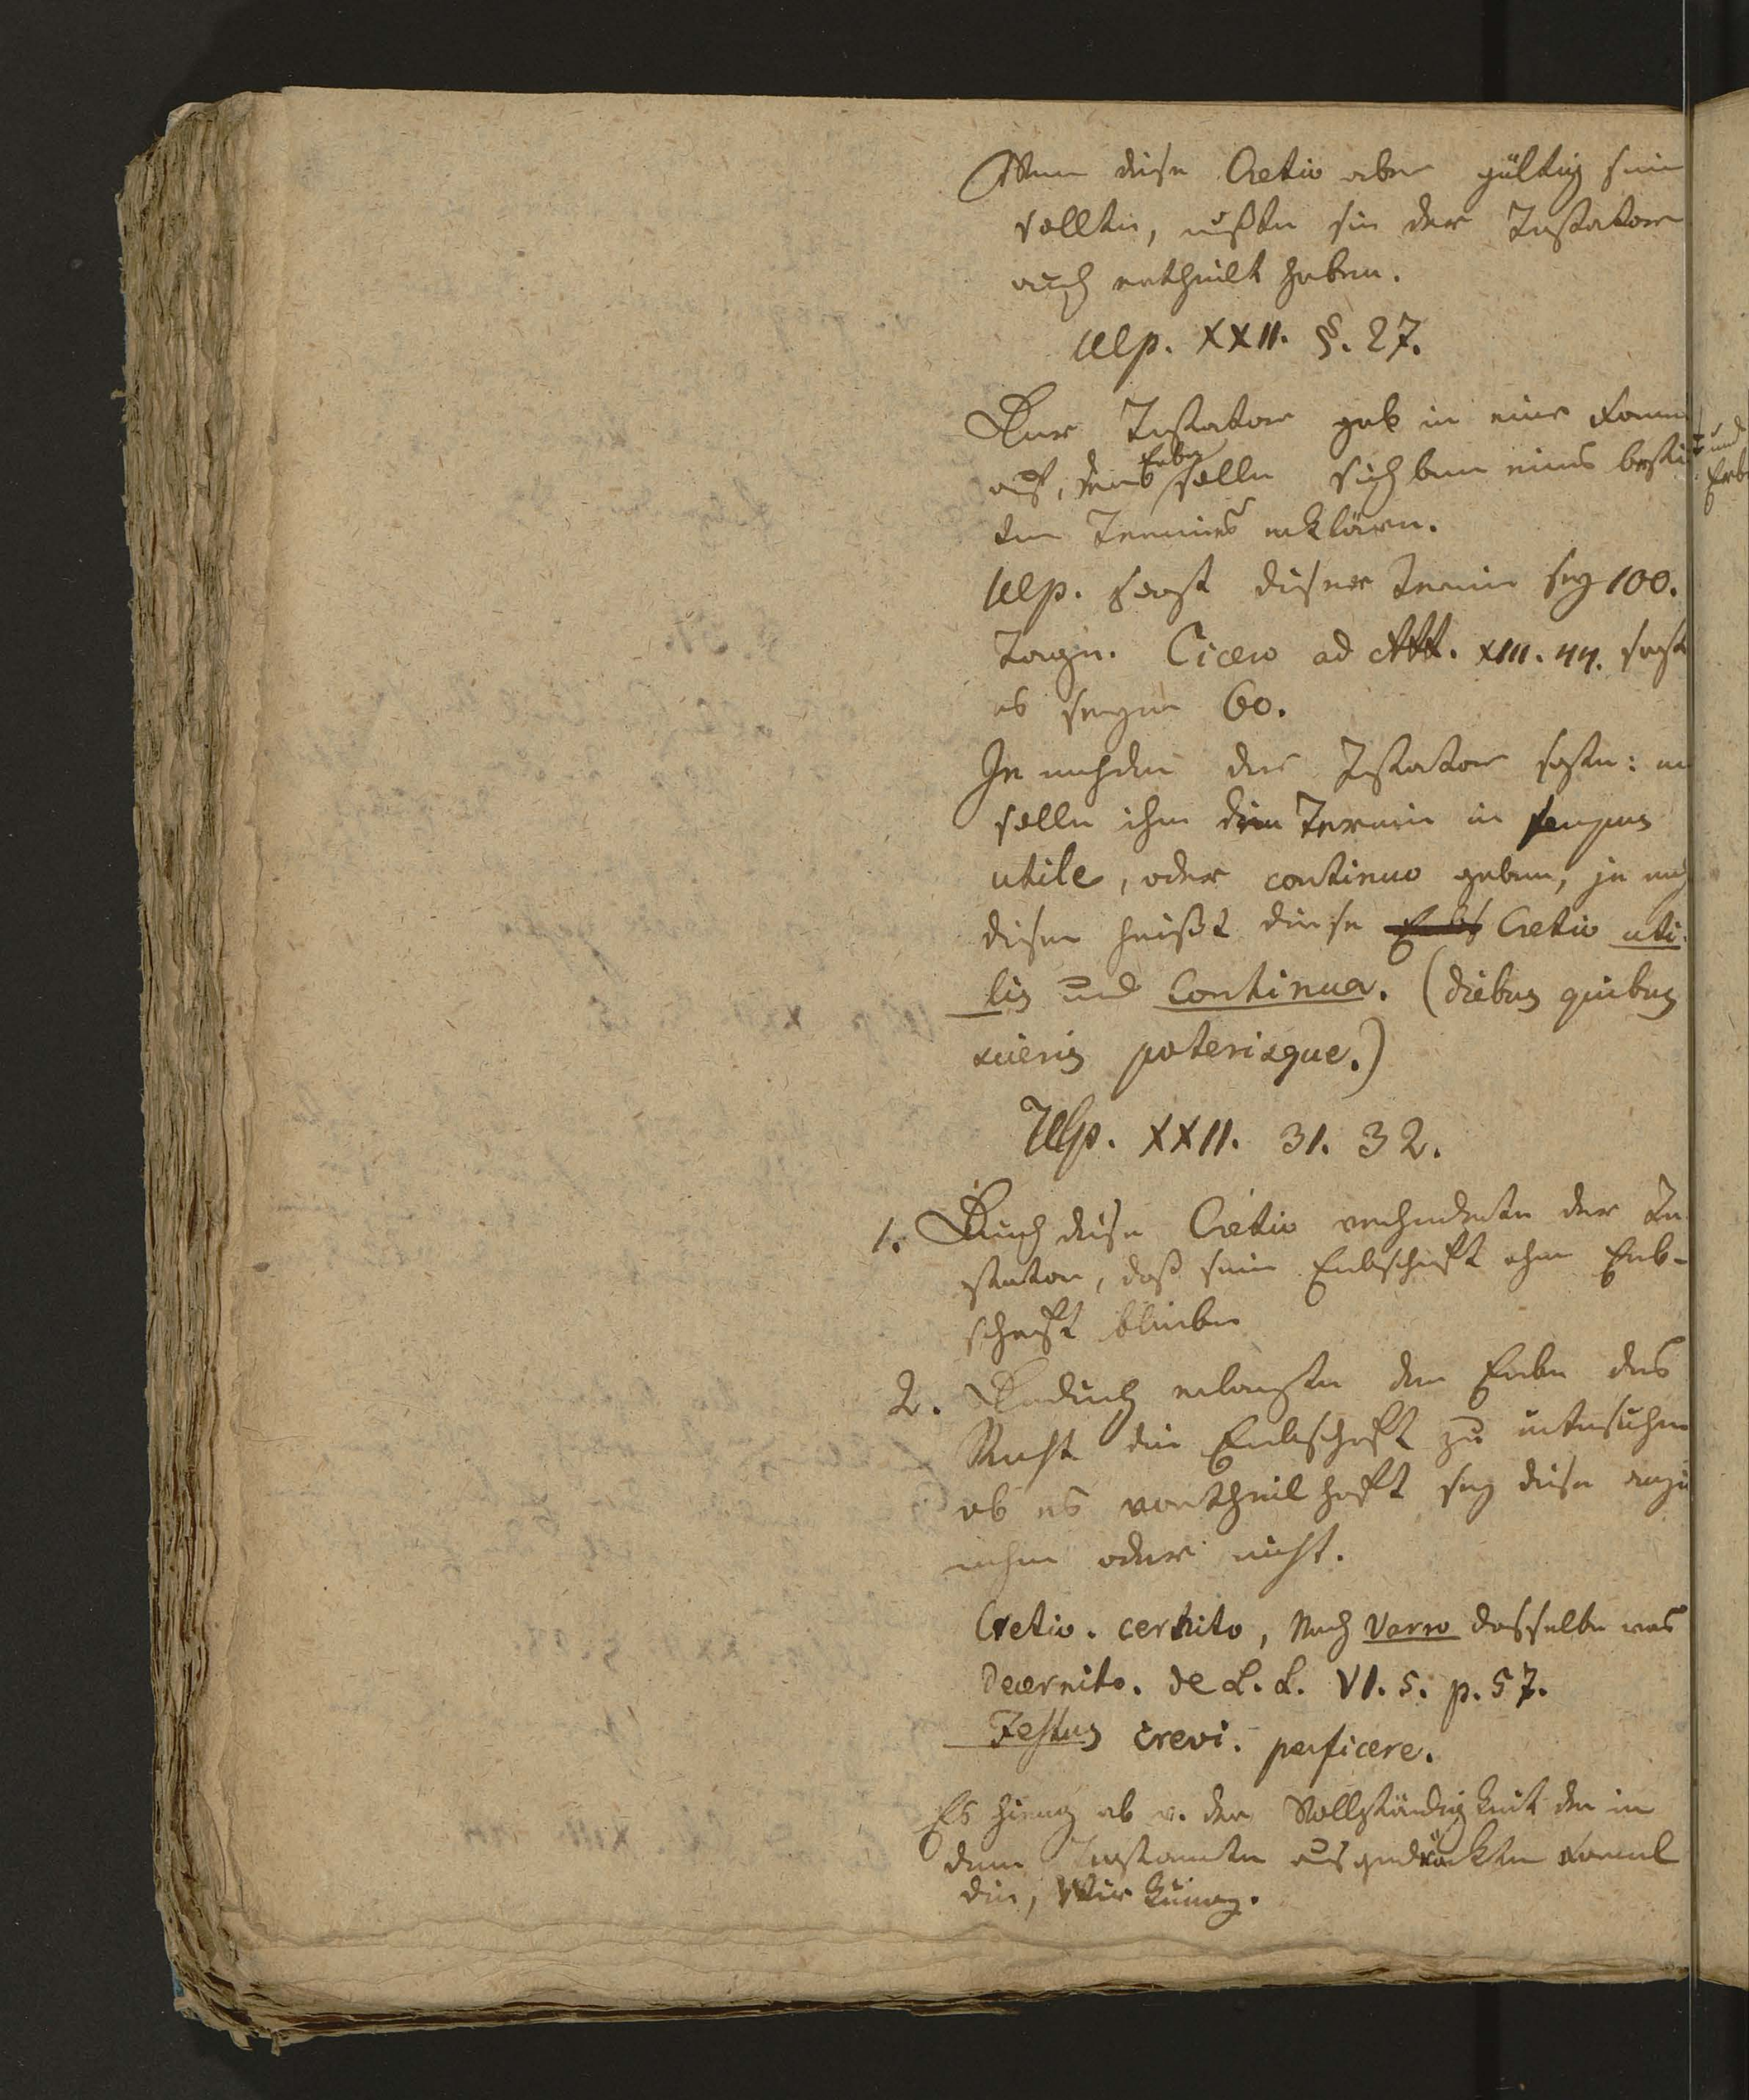 Wenn diese Cretio aber gültig sein
sollte, mußte sie der Testator
auch ertheilt haben.
Ulp. XXII. §. 27.
Der Testator gab in einer Form
auf, der Erbe solle sich binnen eines bestim
ten Termins erklären.
Ulp. sagt dieser Termin sey 100.
Tage. Cicero ad Att. XIII. 44. sagt
es seyen 60.
Je nachdem der Testator sagte: er
solle ihm den Termin in tempus
utile, oder continuo geben, je nach
diesem heißt diese Cretio uti-
lis und Continua. (diebus quibus
scieris poterisque.)
Ulp. XXII. 31. 32.
1. Durch diese Cretio verhinderte der Te
stator, daß seine Erbschaft ohne Erb-
schaft bliebe
2. Dadurch erlangte der Erbe das
Recht die Erbschaft zu untersuchen
ob es vortheilhaft sey diese anzu
nehmen oder nicht.
Cretio. cernito, Nach Varro dasselbe was
Decernito. de L. L. VI. 5. p. 57.
Festus crevi. perficere.
Es hieng ab v. der Vollständigkeit der in
dem Testamente ausgedrückten Formel
die, Wirkung.
und
Erb